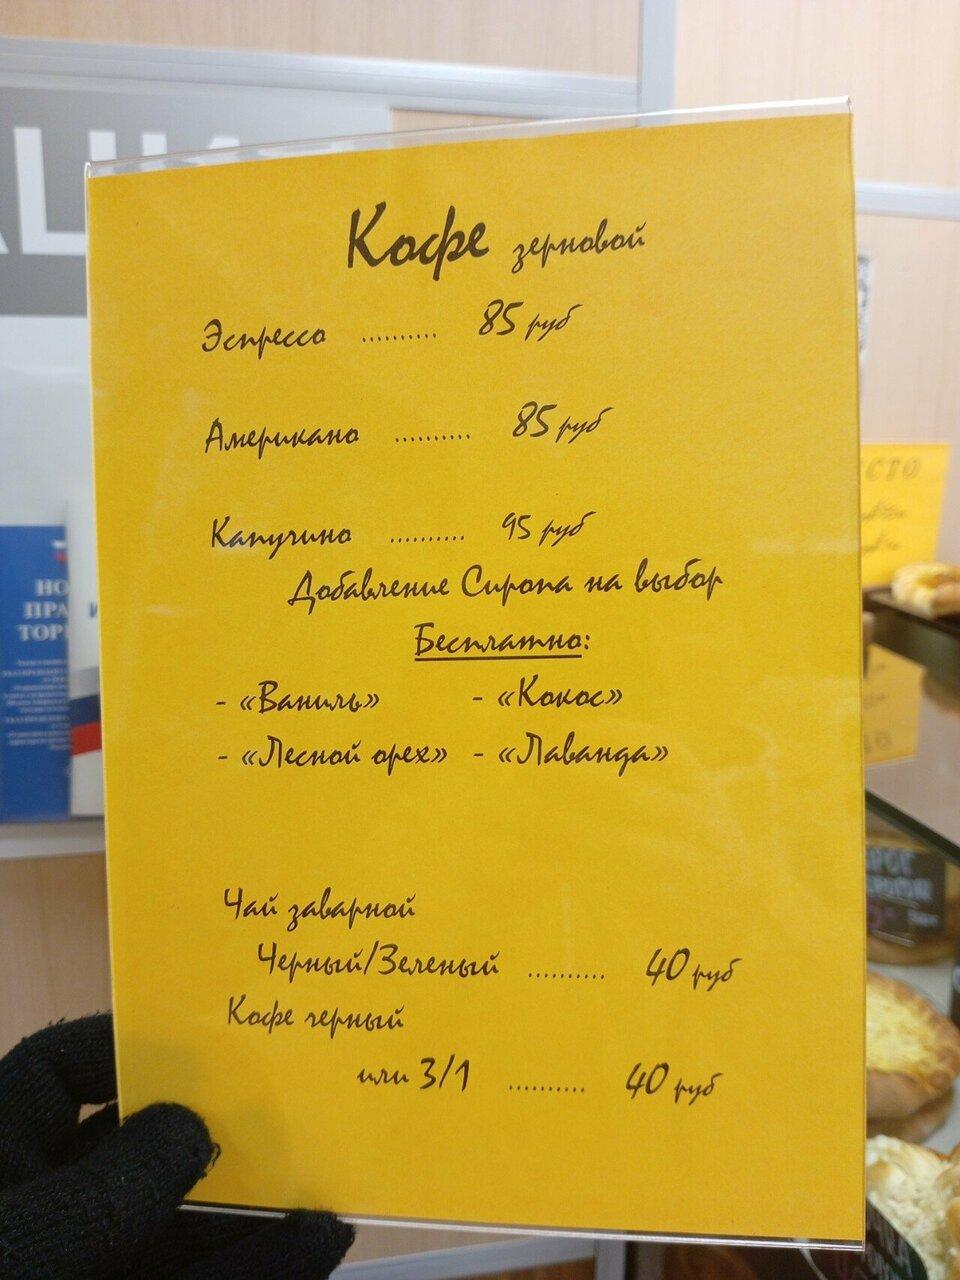 Кофе зерновой
Эспрессо .......... 85 руб
Американо .......... 85 руб
Капучино .......... 95 руб
Добавление Сиропа на выбор
Бесплатно:
- «Ваниль» - «Кокос»
- «Лесной орех» - «Лаванда»
Чай заварной
Черный/Зеленый .......... 40 руб
Кофе черный
или 3/1 .......... 40 руб